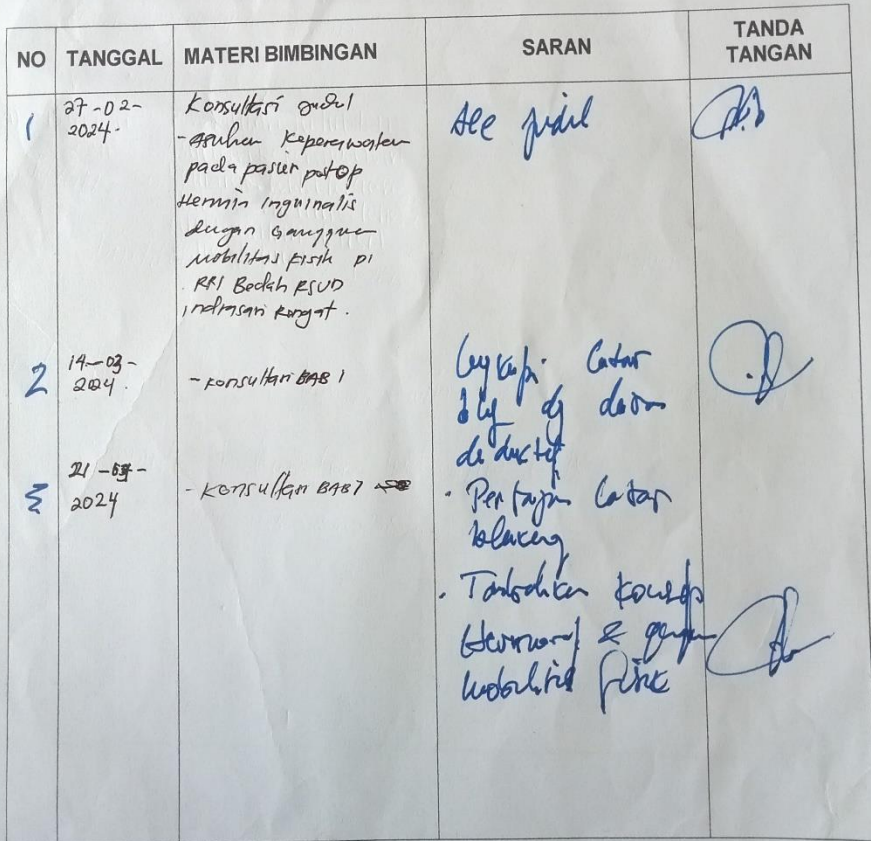 NO TANGGAL MATERI BIMBINGAN SARAN TANDA TANGAN
1
27-02-
2024.
Konsultasi judul
- Asuhan Keperawatan
pada pasien postop
Hernia Inguinalis
dengan Gangguan
Mobilitas Fisik Di
RRI Bedah RSUD
indrasari Rengat.
Acc judul
2
14-03-
2024.
- Konsultasi BAB 1
Lengkapi Latar
blkg dg
deductif
3
21-03-
2024
- Konsultasi BAB 1
. Pertajam Latar
belakang
. Tambahkan Konsep
& gangguan
mobilitas fisik